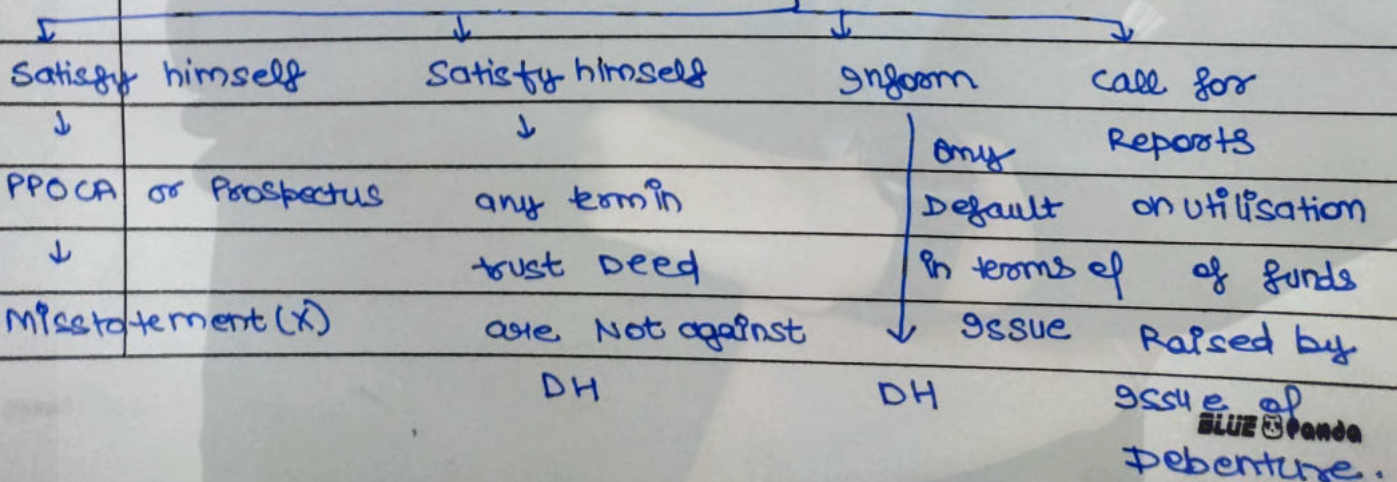 Satisfy himself
↓
PPOCA or Prospectus
↓
Misstatement (X)
Satisfy himself
↓
any term in
trust Deed
are Not against
DH
Inform
↓
DH
any
Default
in terms of
Issue
Call for
Reports
on utilisation
of funds
Raised by
Issue of
Debenture.
BLUE Panda